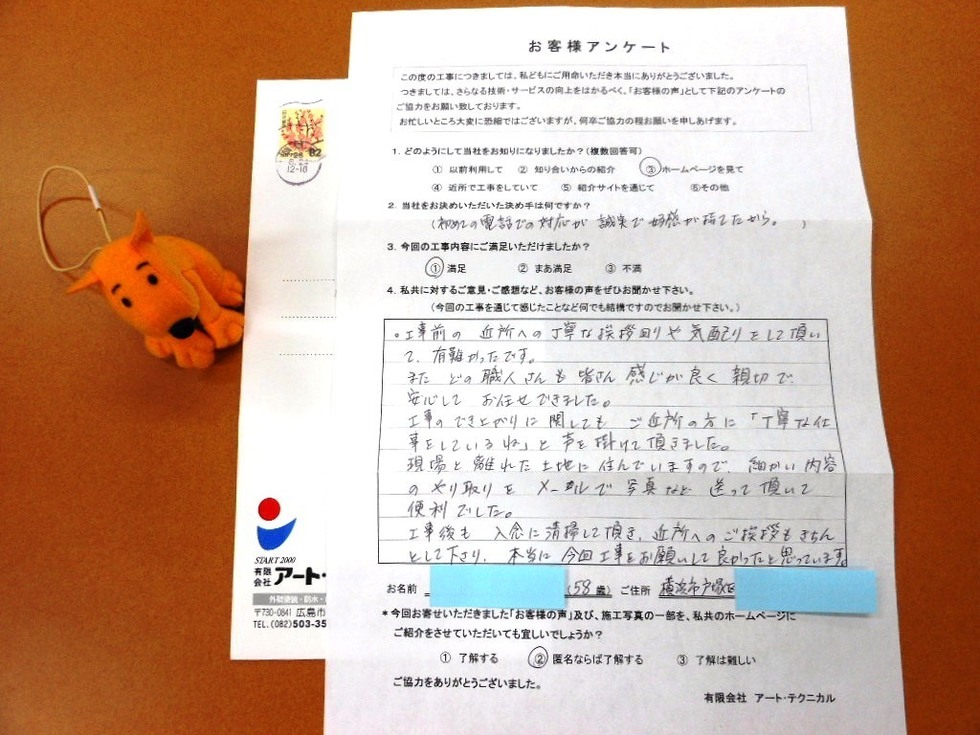 お客様アンケート
この度の工事につきましては、私どもにご用命いただき本当にありがとうございました。
つきましては、さらなる技術・サービスの向上をはかるべく、「お客様の声」として下記のアンケートの
ご協力をお願い致しております。
お忙しいところ大変に恐縮ではございますが、何卒ご協力の程お願いを申しあげます。
1. どのようにして当社をお知りになりましたか？(複数回答可)
① 以前利用して ② 知り合いからの紹介 ③ ホームページを見て
④ 近所で工事をしていて ⑤ 紹介サイトを通じて ⑥その他
2. 当社をお決めいただいた決め手は何ですか？
(初めての電話での対応が 誠実で 好感が持てたから。 )
3. 今回の工事内容にご満足いただけましたか？
① 満足 ② まあ満足 ③ 不満
4. 私共に対するご意見・ご感想など、お客様の声をぜひお聞かせ下さい。
(今回の工事を通じて感じたことなど何でも結構ですのでお聞かせ下さい。)
。工事前の 近所への丁寧な挨拶回りや 気配りをして頂い
て、有難かったです。
また どの職人さんも 皆さん 感じが良く 親切で
安心して お任せできました。
工事のでき上がりに関しても ご近所の方に「丁寧な仕
事をしているね」と声を掛けて頂きました。
現場と離れた土地に住んでいますので、細かい内容
のやり取りを メールで写真など 送って頂いて
便利でした。
工事後も 入念に清掃して頂き、近所へのご挨拶もきちん
として下さり、本当に今回工事をお願いして良かったと思っています。
お名前 (58 歳) ご住所 横浜市戸塚区
*今回お寄せいただきました「お客様の声」及び、施工写真の一部を、私共のホームページに
ご紹介をさせていただいても宜しいでしょうか？
① 了解する ② 匿名ならば了解する ③ 了解は難しい
ご協力をありがとうございました。
有限会社 アート・テクニカル
82
12-18
START 2000
有限会社 アート・
外壁塗装・防水・
〒730-0841 広島市
TEL.(082)503-35